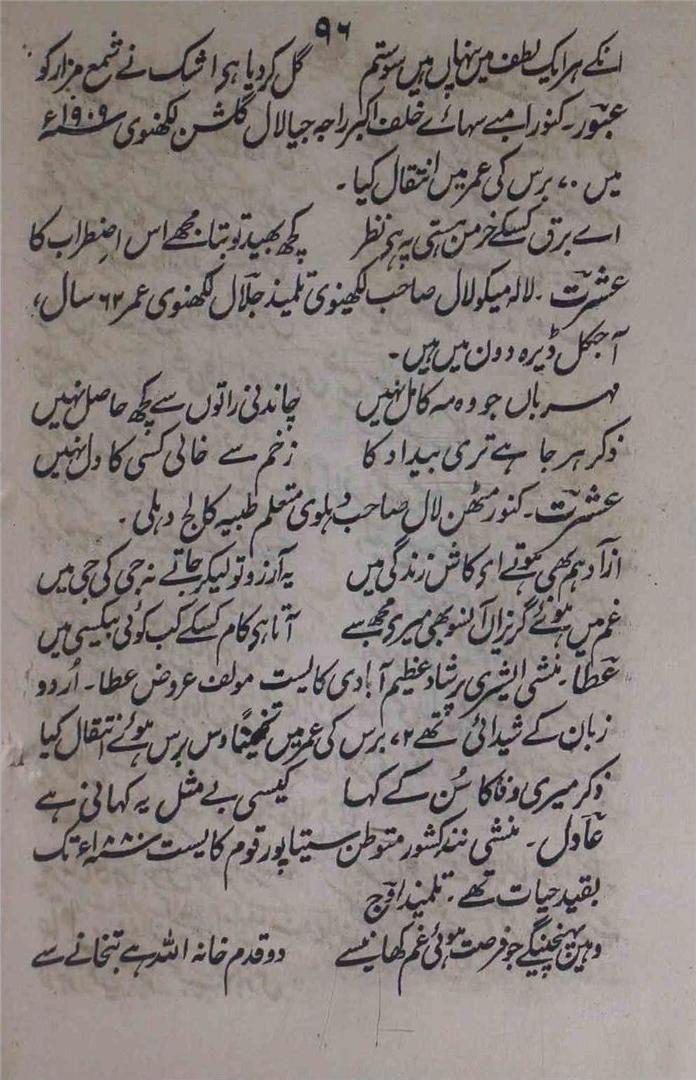 ۹۶
انکے ہر ایک لطف میں پنہاں ہیں سو ستم گل کر دیا ہی اشک نے شمع مزار کو
عبور۔ کنور امبے سہائے خلف اکبر راجہ جیالال گلشن لکھنوی ۱۹۰۹ء
میں ۷۰ برس کی عمر میں انتقال کیا۔
اے برق کسکے خرمن ہستی پہ ہی نظر کچھ بھید تو بتا مجھے اس اضطراب کا
عشرت۔ لالہ میکولال صاحب لکھنوی تلمیذ جلال لکھنوی عمر ۶۲ سال،
آجکل ڈیرہ دون میں ہیں۔
مہرباں جو وہ مہ کامل نہیں چاندنی راتوں سے کچھ حاصل نہیں
ذکر ہر جا ہے تری بیداد کا زخم سے خالی کسی کا دل نہیں
عشرت۔ کنور مٹھن لال صاحب دہلوی متعلم طبیہ کالج دہلی۔
آزاد ہم بھی ہوتے ای کاش زندگی میں یہ آرزو تو لیکر جاتے نہ جی کی جی میں
غم میں ہوئے گریزاں آنسو بھی میری مجھسے آتا ہی کام کسکے کب کوئی بیکسی میں
عطا۔ منشی ایشری پرشاد عظیم آبادی کایست مولف عروض عطا۔ اُردو
زبان کے شیدائی تھے ۷۲ برس کی عمر میں تخمیناً دس برس ہوئے انتقال کیا
ذکر میری وفا کا سُن کے کہا کیسی بے مثل یہ کہانی ہے
عادل۔ منشی نند کشور متوطن سیتاپور قوم کایست ۱۸۸۰ء تک
بقید حیات تھے۔ تلمیذ اوج
وہیں پہنچینگے جو فرصت ہوئی غم کھانیسے دو قدم خانہ اللہ ہے بتخانے سے